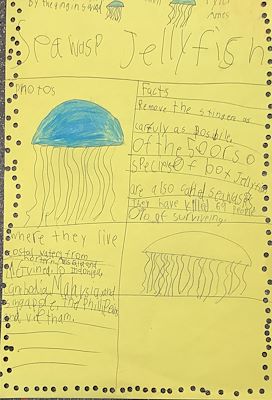 by the
James
Sea wasp Jellyfish
Photos
Facts
Remove the stingers as
carfuly as posible.
Of the 50 or so
species Of box Jellyfish
are also called seawasps
They have killed 69 people
0% of surviveing
where they live
costal waters from
Northern
Cambodia, Malaysia and
singapore, the Philippines
and vietnam.